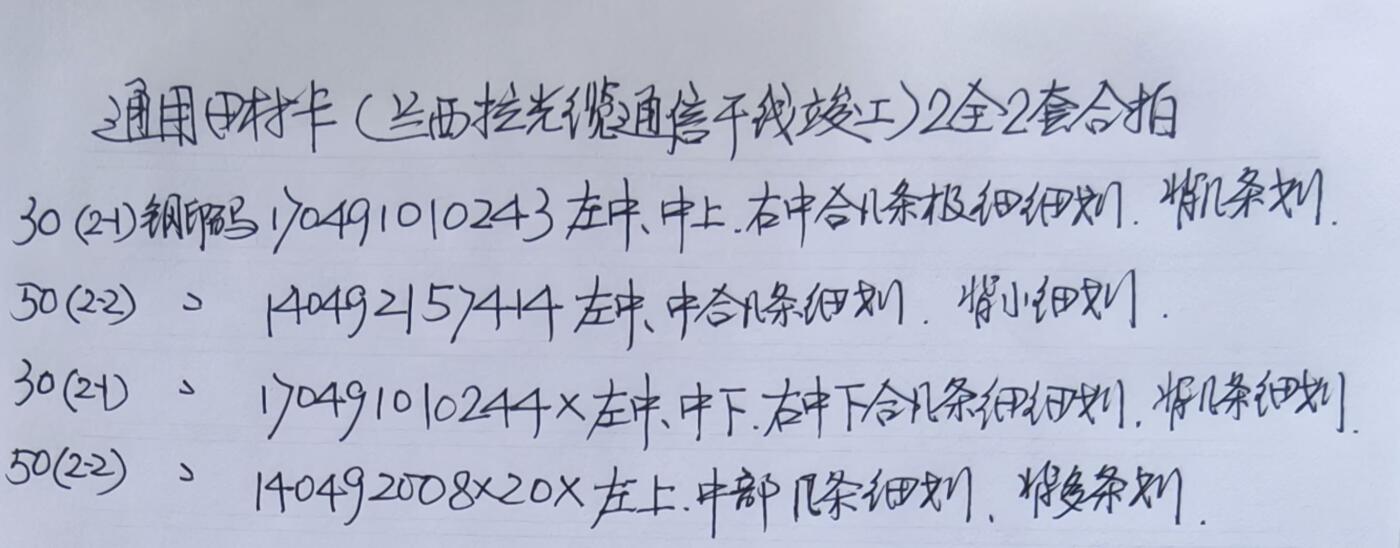 通用田村卡(兰西拉光缆通信干线竣工)2全2套合拍
30(2-1)钢印码170491010243左中、中上.右中合几条极细细划.背几条划.
50(2-2) 〃 140492157414左中、中合几条细划.背小细划.
30(2-1) 〃 170491010244×左中、中下.右中下合几条细细划.背几条细划.
50(2-2) 〃 140492008×20×左上.中部几条细划、背多条划.